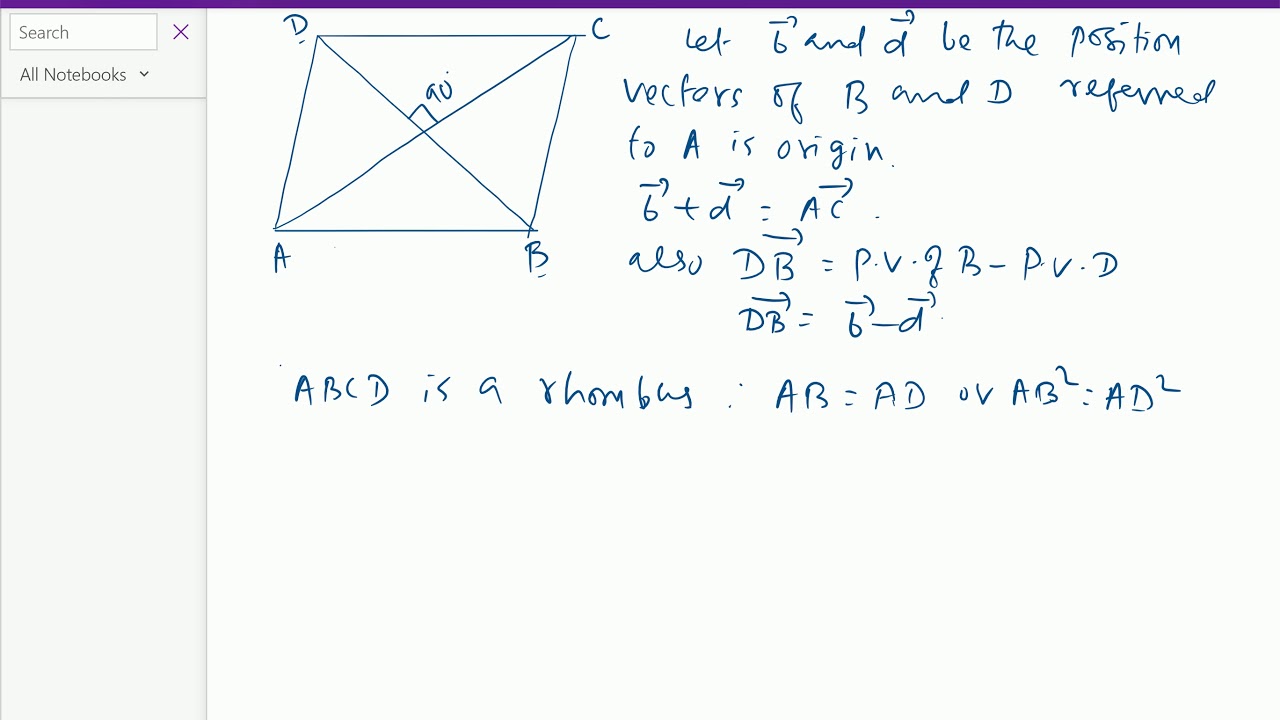 Search
All Notebooks
D
C
90°
A
B
Let b⃗ and d⃗ be the position
vectors of B and D referred
to A is origin.
b⃗ + d⃗ = AC⃗ .
also DB⃗ = P.V. of B - P.V. D
DB⃗ = b⃗ - d⃗.
ABCD is a rhombus : AB = AD or AB² = AD²